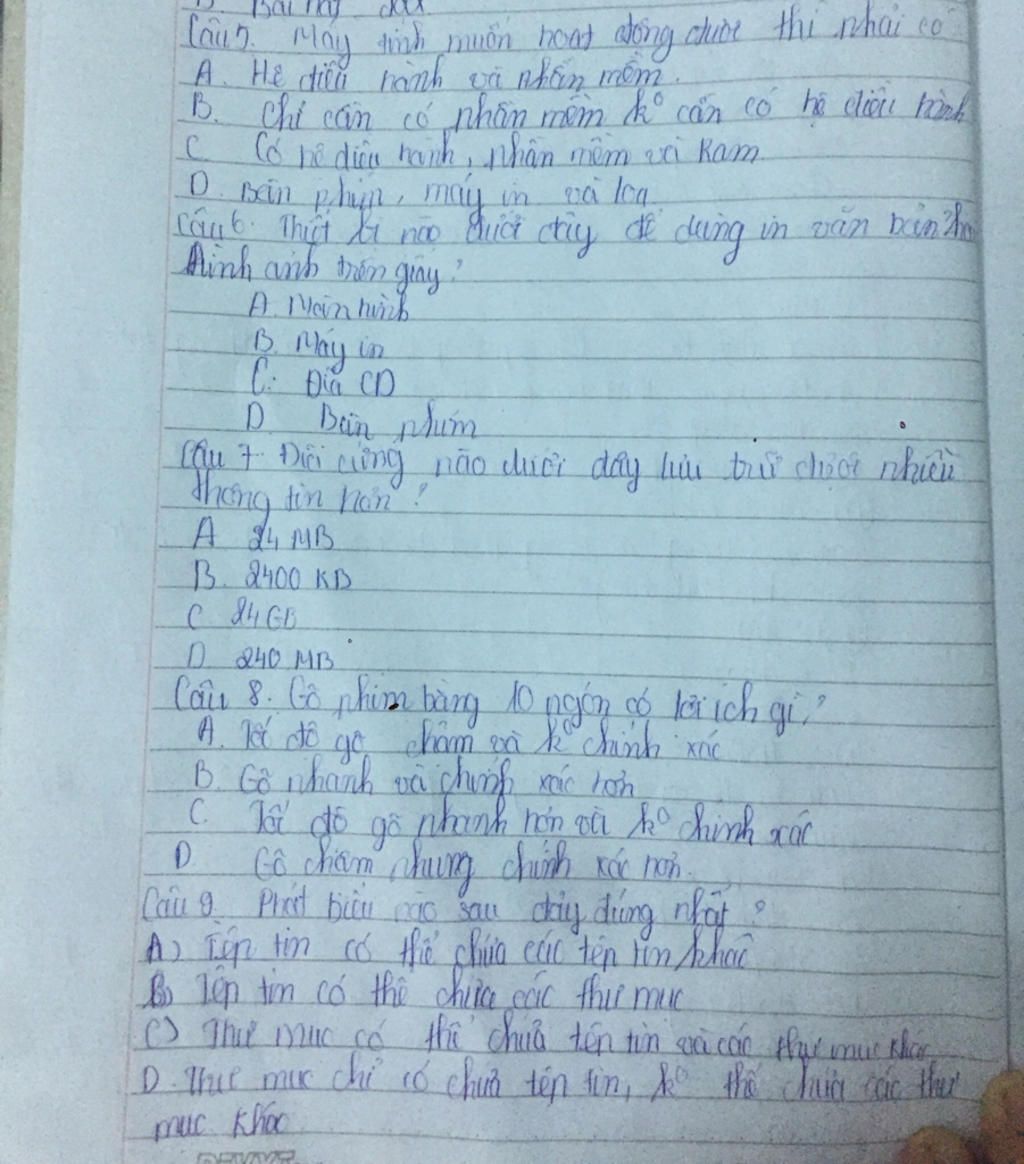 D. Bài này
Câu 5. Máy tính muốn hoạt động được thì phải có
A. Hệ điều hành và phần mềm.
B. Chỉ cần có phần mềm k° cần có hệ điều hành
C. Có hệ điều hành, phần mềm và Ram.
D. Bàn phím, máy in và loa
Câu 6. Thiết bị nào dưới đây để dùng in văn bản
hình ảnh trên giấy?
A. Màn hình
B. Máy in
C. Đĩa CD
D. Bàn phím
Câu 7. Đĩa cứng nào dưới đây lưu trữ được nhiều
thông tin hơn?
A 24 MB
B. 2400 KB
C 24 GB
D 240 MB
Câu 8. Gõ phím bằng 10 ngón có lợi ích gì?
A. Tốc độ gõ chậm và k° chính xác
B. Gõ nhanh và chính xác hơn
C. Tốc độ gõ nhanh hơn và k° chính xác
D. Gõ chậm nhưng chính xác hơn.
Câu 9. Phát biểu nào sau đây đúng nhất?
A) Tệp tin có thể chứa các tệp tin khác
B) Tệp tin có thể chứa các thư mục
C) Thư mục có thể chứa tệp tin và các thư mục khác
D. Thư mục chỉ có chứa tệp tin, k° thể chứa các thư
mục khác